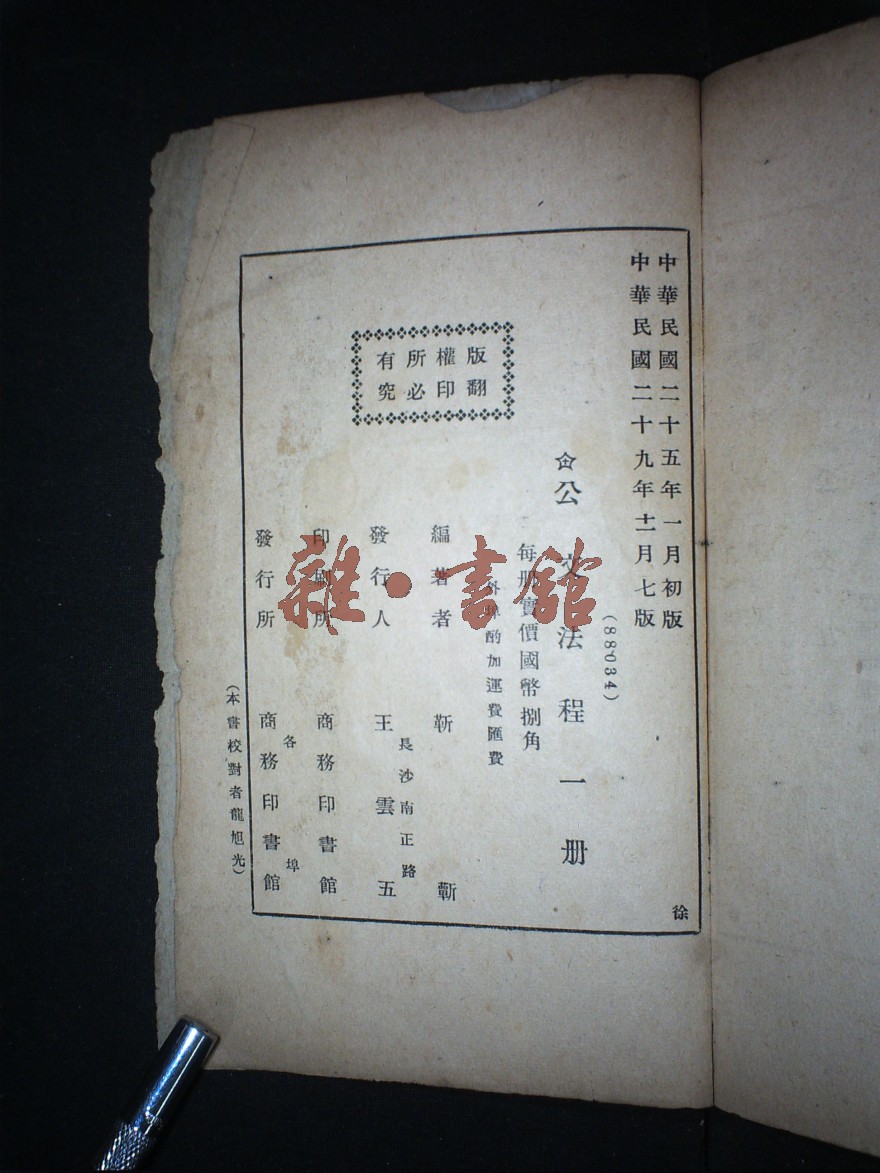 中華民國二十五年一月初版
中華民國二十九年十二月七版
(88034)
公文法程一册
每册實價國幣捌角
外埠酌加運費匯費
版權所有
翻印必究
編著者 靳
發行人 王雲五
長沙南正路
印刷所 商務印書館
各埠
發行所 商務印書館
(本書校對者龍旭光)
徐
雜·書館